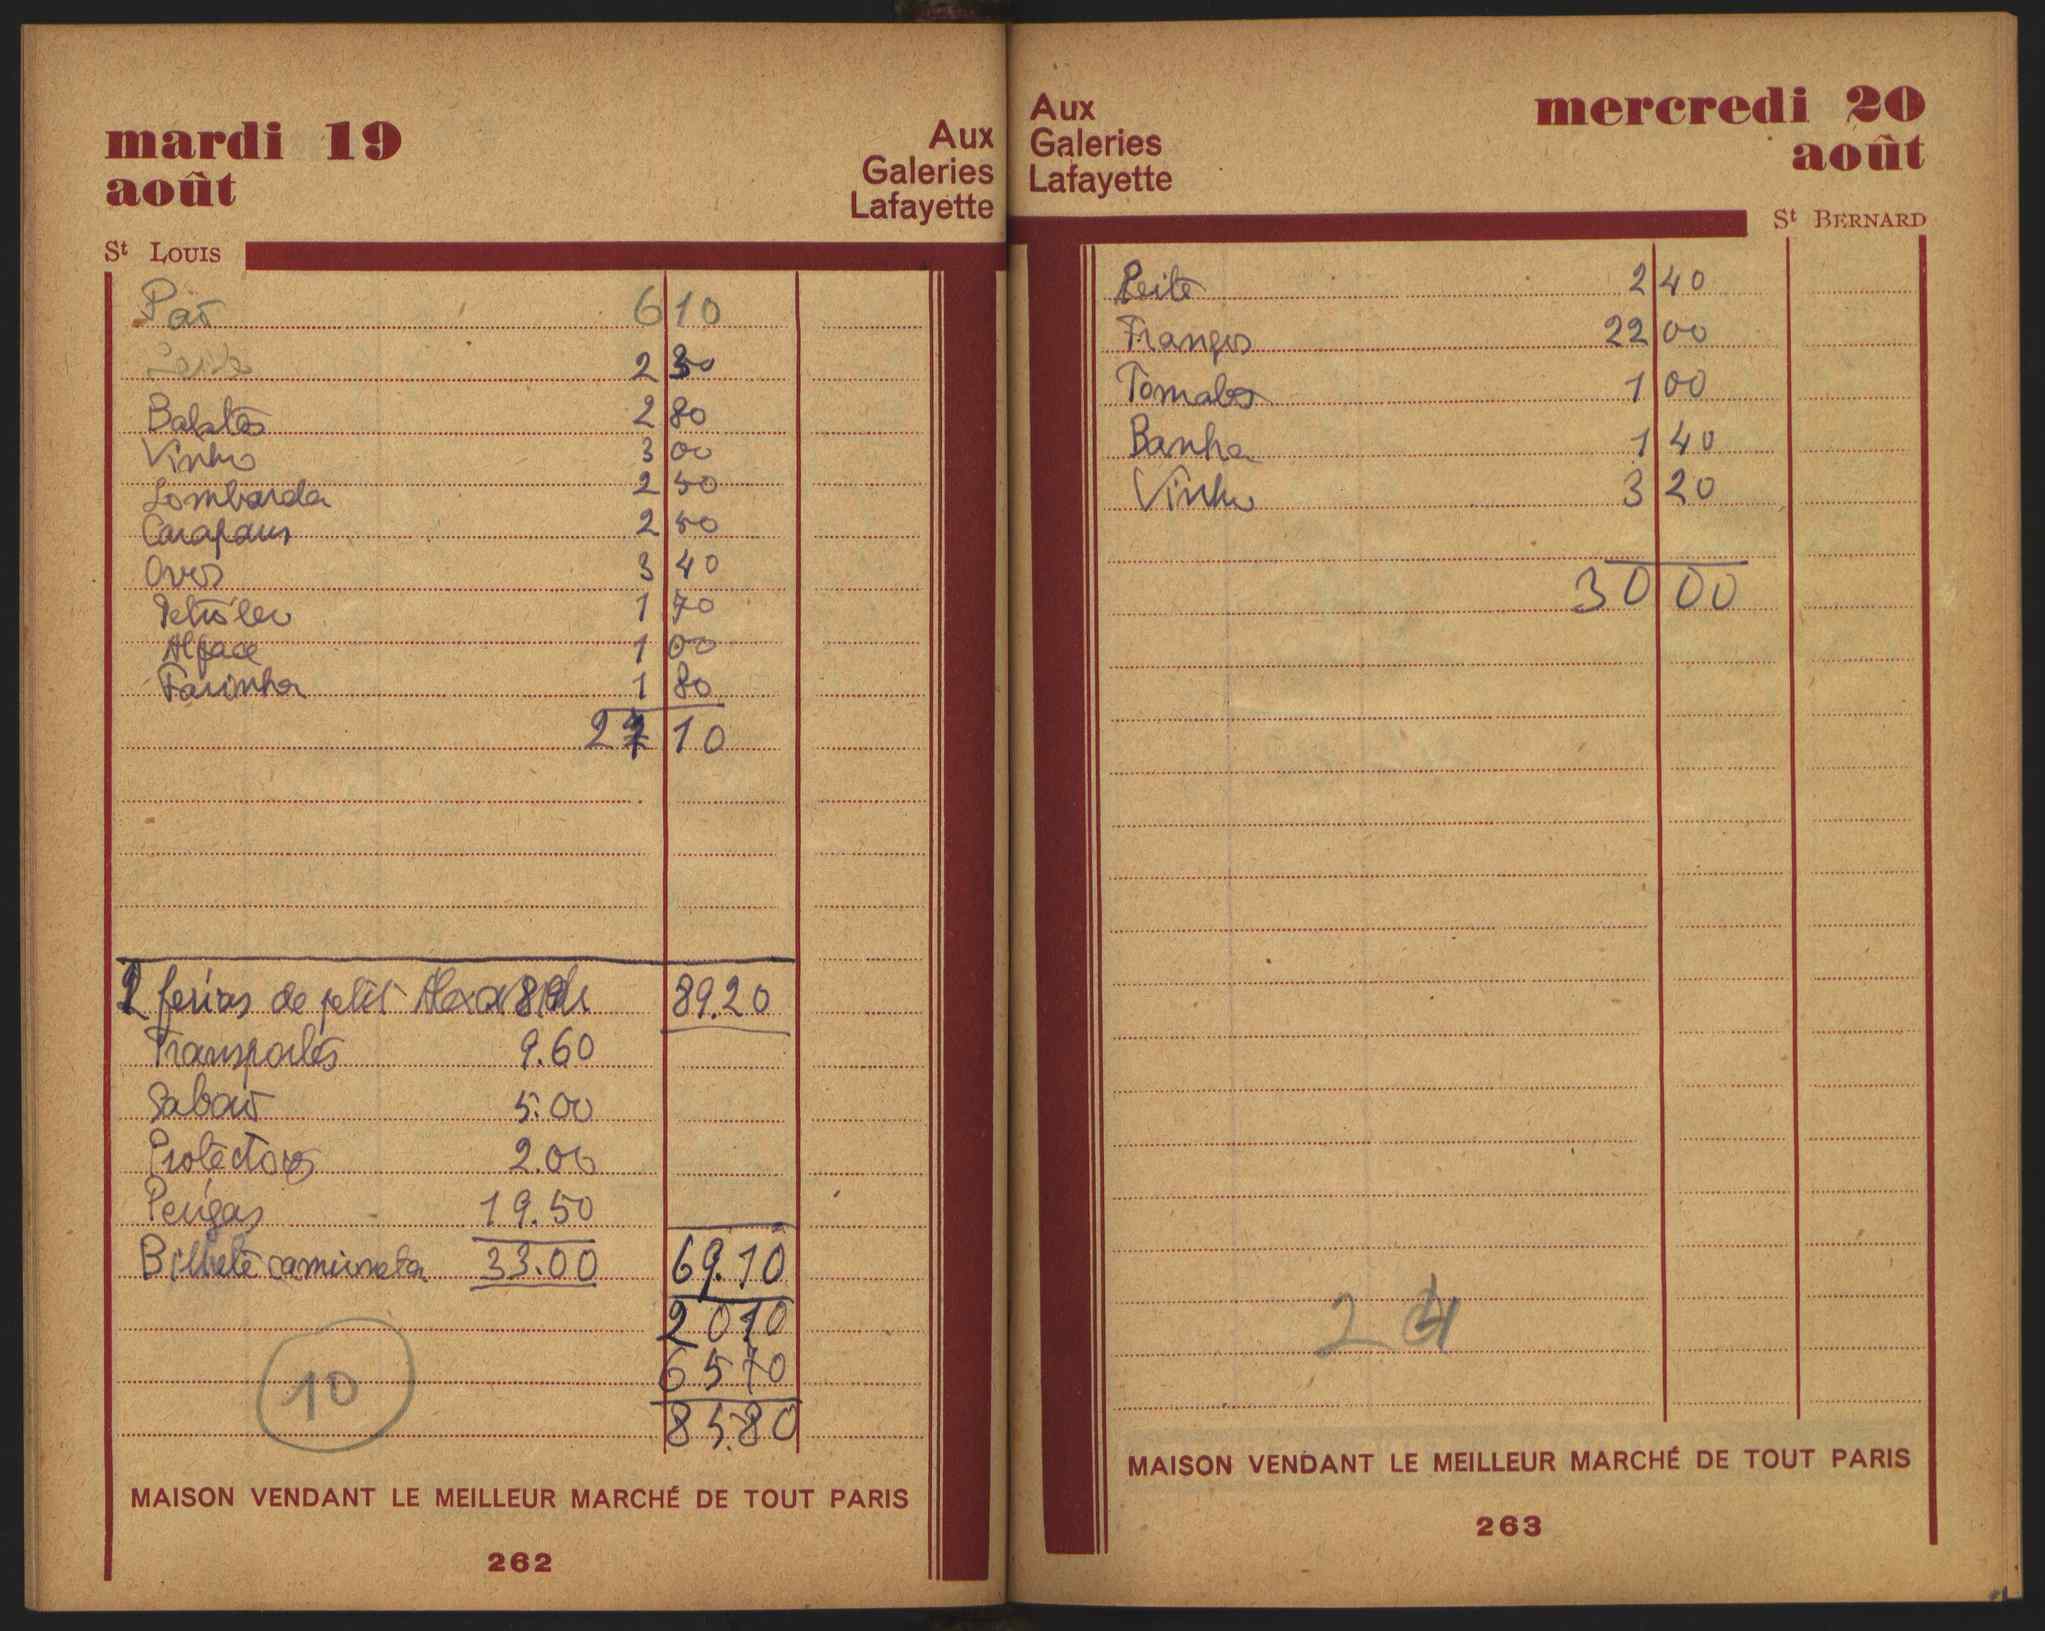 mardi 19
août
Aux
Galeries
Lafayette
St LOUIS
Pão 6 10
Leite 2 30
Batatas 2 80
Vinho 3 00
Lombarda 2 50
Carapaus 2 50
Ovos 3 40
Petróleo 1 70
Alface 1 00
Farinha 1 80
27 10
2 ferias de petit 89.20
Transportes 9.60
Sabão 5.00
Protectores 2.00
19.50
Bilhete camioneta 33.00 69.10
2010
6570
85.80
10
MAISON VENDANT LE MEILLEUR MARCHÉ DE TOUT PARIS
262
Aux
Galeries
Lafayette
mercredi 20
août
St BERNARD
Leite 2 40
Frangos 22 00
Tomates 1 00
Banha 1 40
Vinho 3 20
30 00
24
MAISON VENDANT LE MEILLEUR MARCHÉ DE TOUT PARIS
263